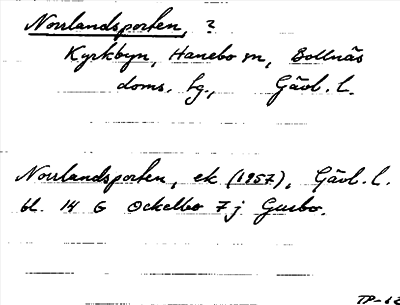 Norrlandsporten, ?
Kyrkbyn, Hanebo sn, Bollnäs
doms. lg., Gävl. l.
Norrlandsporten, ek (1957), Gävl. l.
bl. 14 G Ockelbo 7 j Gusbo.